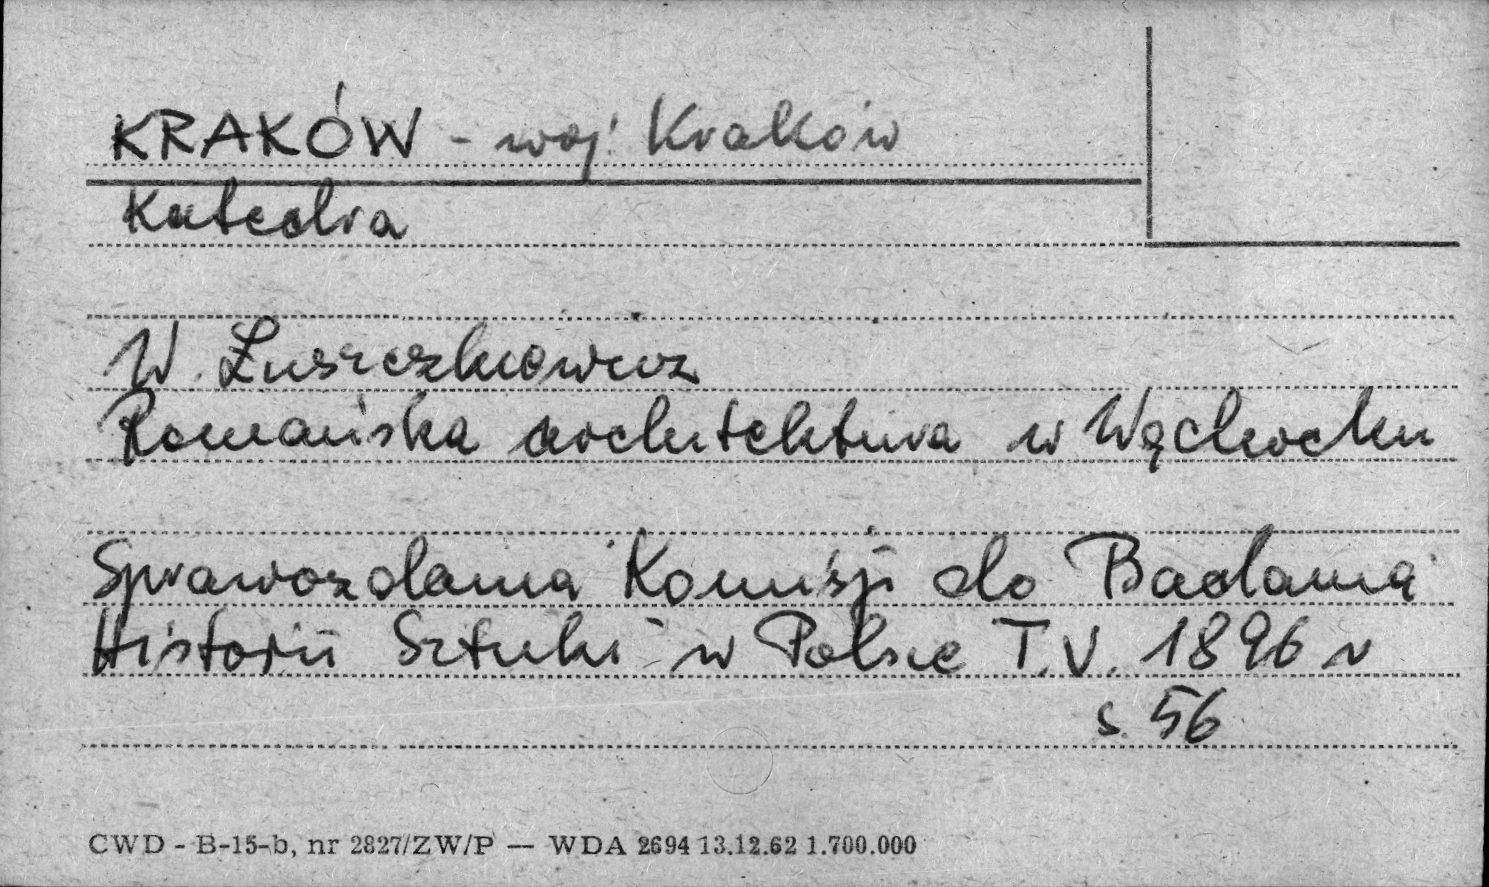 KRAKÓW - woj. Kraków
Katedra
W. Łuszczkiewicz
Romańska architektura w Wąchocku
Sprawozdania Komisji do Badania
Historii Sztuki w Polsce T.V. 1896 r
s. 56
CWD - B-15-b, nr 2827/ZW/P — WDA 2694 13.12.62 1.700.000